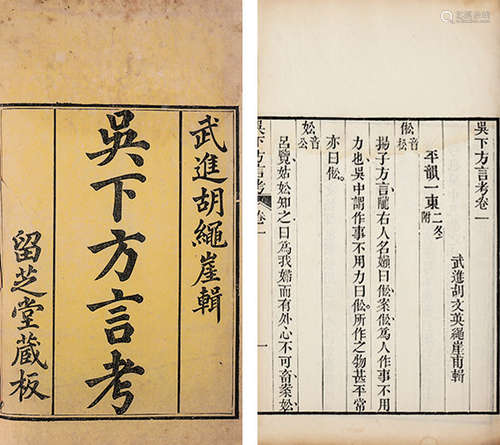 武進胡繩崖輯
吳下方言考
留芝堂藏板
吳下方言考卷一
武進胡文英繩崖甫輯
平韻一東二冬附
倯音松
揚子方言隴右人名嬾曰倯案倯為人作事不用
力也吳中謂作事不用力曰倯所作之物甚平常
亦曰倯
妐音公
呂覽姑妐知之曰為我婦而有外心不可畜案妐
吳下方言考
卷一
一